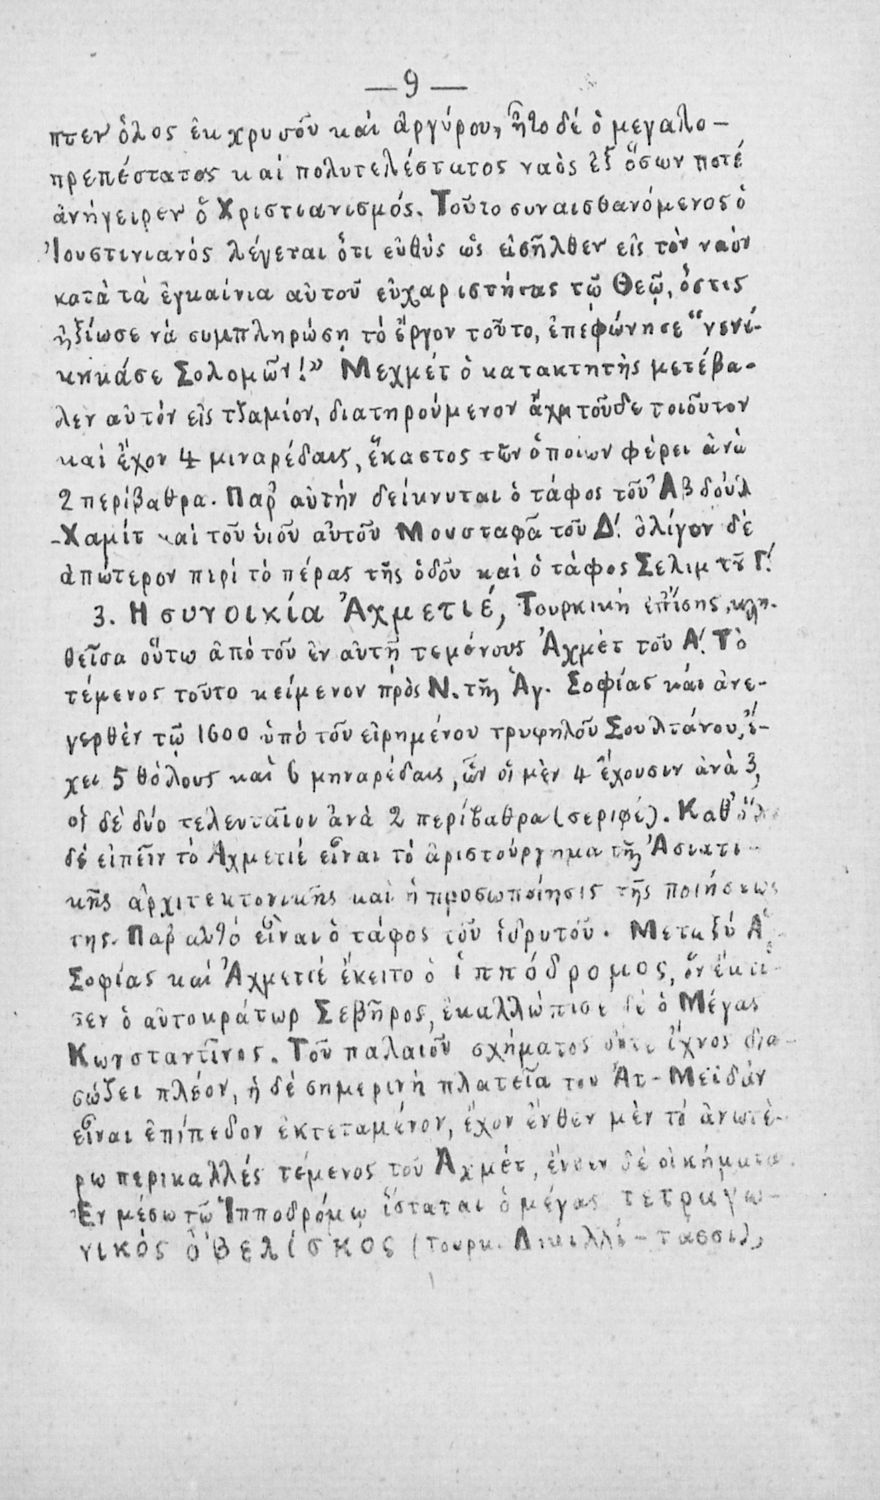 — 9 —
πτεν ὅλος ἐκ χρυσοῦ καὶ ἀργύρου, ἦτο δέ ὁ μεγαλο-
πρεπέστατος καὶ πολυτελέστατος ναὸς ἐξ ὅσων ποτέ
ἀνήγειρεν ὁ Χριστιανισμός. Τοῦτο συναισθανόμενος ὁ
Ἰουστινιανὸς λέγεται ὅτι εὐθὺς ὡς εἰσῆλθεν εἰς τὸν ναὸν
κατὰ τὰ ἐγκαίνια αὐτοῦ εὐχαριστήσας τῷ Θεῷ, ὅστις
ἠξίωσε νὰ συμπληρώσῃ τὸ ἔργον τοῦτο, ἐπεφώνησε "νενί-
κηκάσε Σολομῶν!" Μεχμέτ ὁ κατακτητὴς μετέβα-
λεν αὐτὸν εἰς τζαμίον, διατηρούμενον ἄχρι τοῦδε τοιοῦτον
καὶ ἔχον 4 μιναρέδαις, ἕκαστος τῶν ὁποίων φέρει ἀνὰ
2 περίβαθρα. Παρ' αὐτὴν δείκνυται ὁ τάφος τοῦ Ἀβδούλ
-Χαμίτ καὶ τοῦ υἱοῦ αὐτοῦ Μουσταφᾶ τοῦ Δ'. ὀλίγον δὲ
ἀπώτερον περὶ τὸ πέρας τῆς ὁδοῦ καὶ ὁ τάφος Σελὶμ τοῦ Γ'.
3. Η συνοικία Ἀχμετιέ, Τουρκικὴ ἐπίσης, κλη-
θεῖσα οὕτω ἀπὸ τοῦ ἐν αὐτῇ τεμένους Ἀχμὲτ τοῦ Α'. Τὸ
τέμενος τοῦτο κείμενον πρὸς Ν. τῆς Ἁγ. Σοφίας καὶ ἀνε-
γερθὲν τῷ 1600 ὑπὸ τοῦ εἰρημένου τρυφηλοῦ Σουλτάνου, ἔ-
χει 5 θόλους καὶ 6 μηναρέδαις, ὧν οἱ μὲν 4 ἔχουσιν ἀνὰ 3,
οἱ δὲ δύο τελευταῖοι ἀνὰ 2 περίβαθρα (σεριφέ). Καθ' ὅλου
δὲ εἰπεῖν τὸ Ἀχμετιέ εἶναι τὸ ἀριστούργημα τῆς Ἀσιατι-
κῆς ἀρχιτεκτονικῆς καὶ ἡ προσωποίησις τῆς ποιήσεως
της. Παρ' αὐτὸ εἶναι ὁ τάφος τοῦ ἱδρυτοῦ. Μεταξὺ Ἁγ.
Σοφίας καὶ Ἀχμετιέ ἔκειτο ὁ ἱππόδρομος, ὃν ἔκτι-
σεν ὁ αὐτοκράτωρ Σεβῆρος, ἐκαλλώπισε δὲ ὁ Μέγας
Κωνσταντῖνος. Τοῦ παλαιοῦ σχήματος οὔτε ἴχνος δια-
σώζει πλέον, ἡ δὲ σημερινὴ πλατεῖα του Ἀτ-Μεϊδὰν
εἶναι ἐπίπεδον ἐκτεταμένον, ἔχον ἔνθεν μὲν τὸ ἀνωτέ-
ρω περικαλλές τέμενος τοῦ Ἀχμέτ, ἔνθεν δὲ οἰκήματα.
Ἐν μέσῳ τῷ Ἱπποδρόμῳ ἵσταται ὁ μέγας τετραγω-
νικὸς ὀβελίσκος (Τουρκ. Δικιλλὶ-τάσσι),